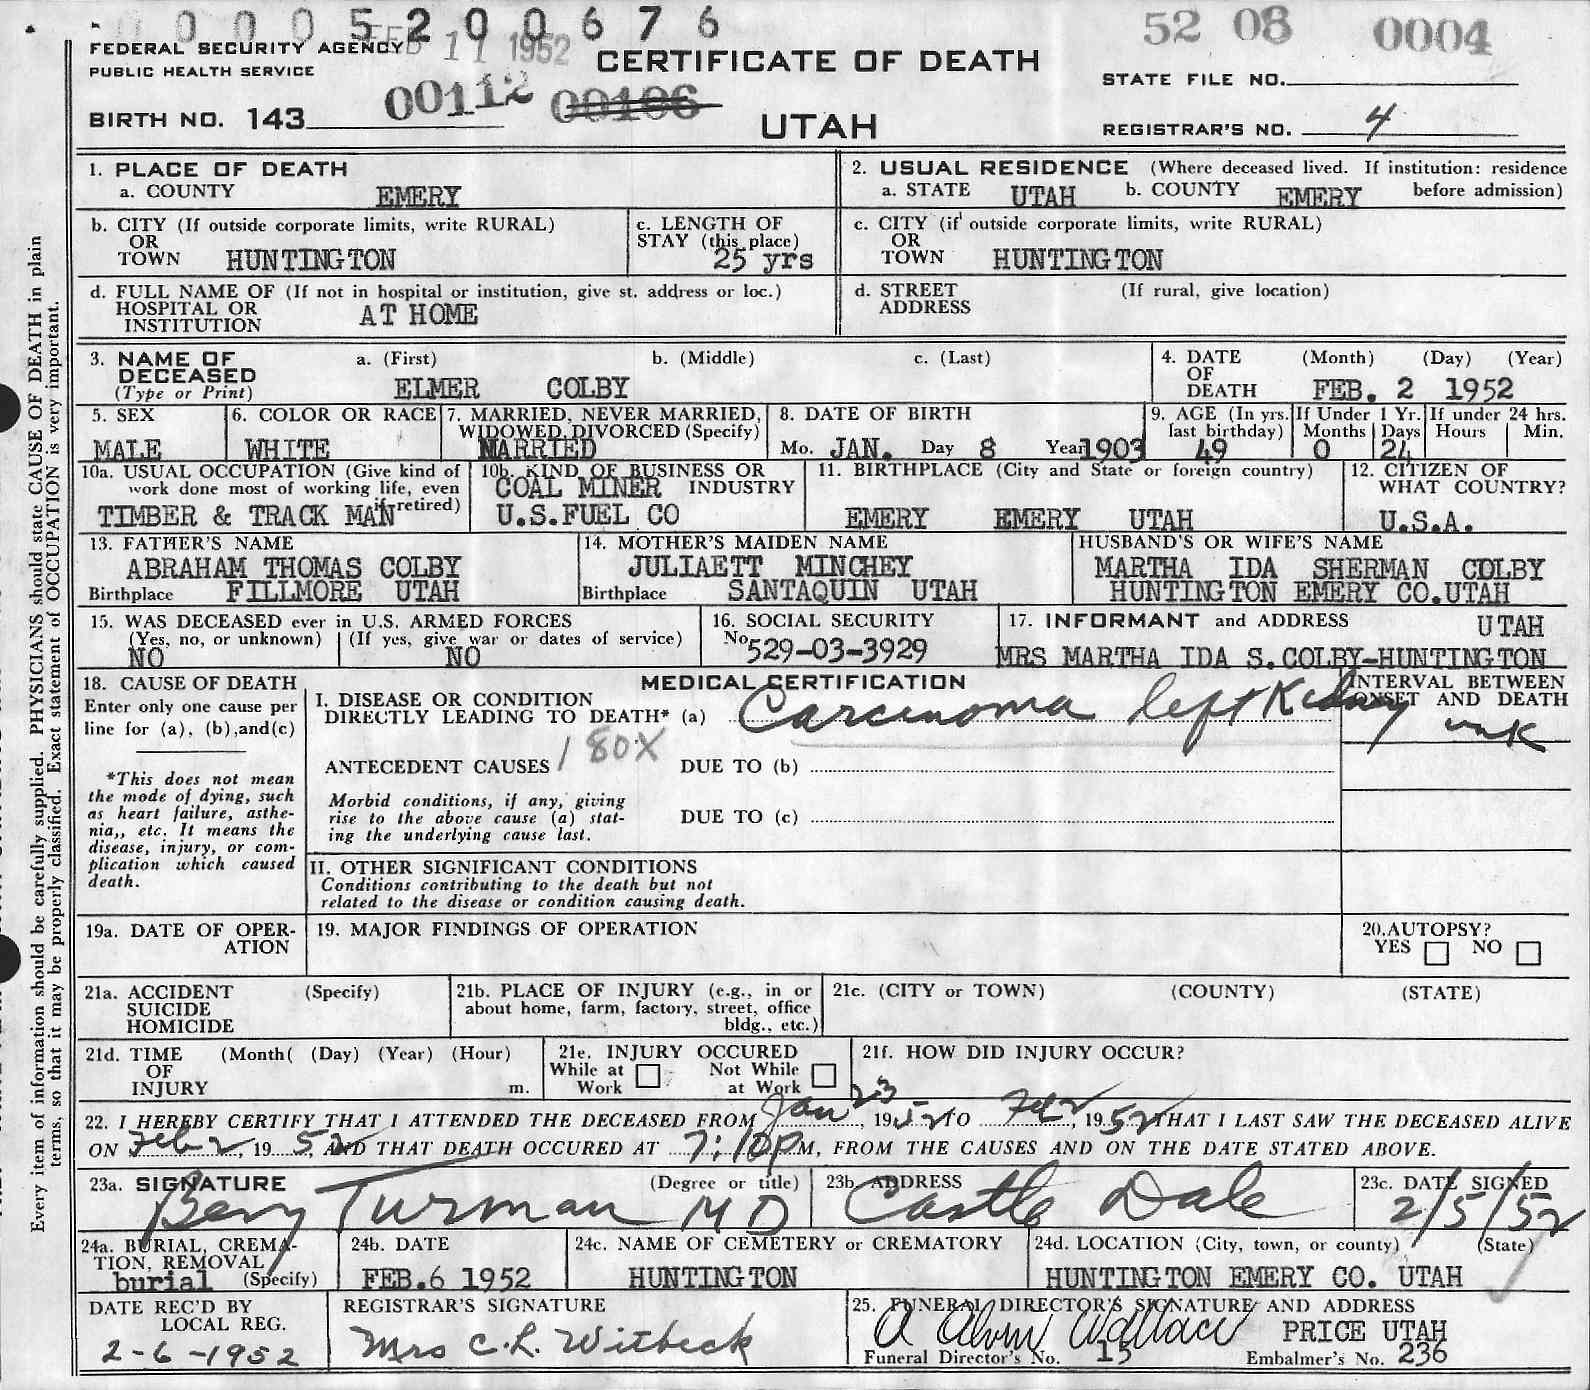 0005200676
FEB 11 1952
52 08 0004
FEDERAL SECURITY AGENCY
PUBLIC HEALTH SERVICE
CERTIFICATE OF DEATH
STATE FILE NO.
BIRTH NO. 143
00112 00106
UTAH
REGISTRAR'S NO. 4
1. PLACE OF DEATH
a. COUNTY EMERY
2. USUAL RESIDENCE (Where deceased lived. If institution: residence
a. STATE UTAH b. COUNTY EMERY before admission)
b. CITY (If outside corporate limits, write RURAL)
OR
TOWN HUNTINGTON
c. LENGTH OF
STAY (this place)
25 yrs
c. CITY (if outside corporate limits, write RURAL)
OR
TOWN HUNTINGTON
d. FULL NAME OF (If not in hospital or institution, give st. address or loc.)
HOSPITAL OR
INSTITUTION AT HOME
d. STREET (If rural, give location)
ADDRESS
3. NAME OF a. (First) b. (Middle) c. (Last)
DECEASED
(Type or Print) ELMER COLBY
4. DATE (Month) (Day) (Year)
OF
DEATH FEB. 2 1952
5. SEX
MALE
6. COLOR OR RACE
WHITE
7. MARRIED, NEVER MARRIED,
WIDOWED, DIVORCED (Specify)
MARRIED
8. DATE OF BIRTH
Mo. JAN. Day 8 Year 1903
9. AGE (In yrs.
last birthday)
49
If Under 1 Yr.
Months Days
0 24
If under 24 hrs.
Hours Min.
10a. USUAL OCCUPATION (Give kind of
work done most of working life, even
if retired)
TIMBER & TRACK MAN
10b. KIND OF BUSINESS OR
COAL MINER INDUSTRY
U.S.FUEL CO
11. BIRTHPLACE (City and State or foreign country)
EMERY EMERY UTAH
12. CITIZEN OF
WHAT COUNTRY?
U.S.A.
13. FATHER'S NAME
ABRAHAM THOMAS COLBY
Birthplace FILLMORE UTAH
14. MOTHER'S MAIDEN NAME
JULIAETT MINCHEY
Birthplace SANTAQUIN UTAH
HUSBAND'S OR WIFE'S NAME
MARTHA IDA SHERMAN COLBY
HUNTINGTON EMERY CO.UTAH
15. WAS DECEASED ever in U.S. ARMED FORCES
(Yes, no, or unknown) (If yes, give war or dates of service)
NO NO
16. SOCIAL SECURITY
No 529-03-3929
17. INFORMANT and ADDRESS UTAH
MRS MARTHA IDA S.COLBY-HUNTINGTON
18. CAUSE OF DEATH
Enter only one cause per
line for (a), (b),and(c)
*This does not mean
the mode of dying, such
as heart failure, asthe-
nia,, etc. It means the
disease, injury, or com-
plication which caused
death.
MEDICAL CERTIFICATION
I. DISEASE OR CONDITION
DIRECTLY LEADING TO DEATH* (a) Carcinoma left Kidney
180X
INTERVAL BETWEEN
ONSET AND DEATH
unk
ANTECEDENT CAUSES DUE TO (b)
Morbid conditions, if any, giving
rise to the above cause (a) stat-
ing the underlying cause last.
DUE TO (c)
II. OTHER SIGNIFICANT CONDITIONS
Conditions contributing to the death but not
related to the disease or condition causing death.
19a. DATE OF OPER-
ATION
19. MAJOR FINDINGS OF OPERATION
20.AUTOPSY?
YES NO
21a. ACCIDENT (Specify)
SUICIDE
HOMICIDE
21b. PLACE OF INJURY (e.g., in or
about home, farm, factory, street, office
bldg., etc.)
21c. (CITY or TOWN) (COUNTY) (STATE)
21d. TIME (Month( (Day) (Year) (Hour)
OF
INJURY m.
21e. INJURY OCCURED
While at Not While
Work at Work
21f. HOW DID INJURY OCCUR?
22. I HEREBY CERTIFY THAT I ATTENDED THE DECEASED FROM Jan 23, 1952 TO Feb 2, 1952 THAT I LAST SAW THE DECEASED ALIVE
ON Feb 2, 1952, AND THAT DEATH OCCURED AT 7:10 P M, FROM THE CAUSES AND ON THE DATE STATED ABOVE.
23a. SIGNATURE (Degree or title)
Turman MD
23b. ADDRESS
Castle Dale
23c. DATE SIGNED
2/5/52
24a. BURIAL, CREMA-
TION, REMOVAL
burial (Specify)
24b. DATE
FEB.6 1952
24c. NAME OF CEMETERY or CREMATORY
HUNTINGTON
24d. LOCATION (City, town, or county) (State)
HUNTINGTON EMERY CO. UTAH
DATE REC'D BY
LOCAL REG.
2-6-1952
REGISTRAR'S SIGNATURE
Mrs C.L. Witbeck
25. FUNERAL DIRECTOR'S SIGNATURE AND ADDRESS
A Alvin Wallace PRICE UTAH
Funeral Director's No. 13 Embalmer's No. 236
Every item of information should be carefully supplied. PHYSICIANS should state CAUSE OF DEATH in plain
terms, so that it may be properly classified. Exact statement of OCCUPATION is very important.